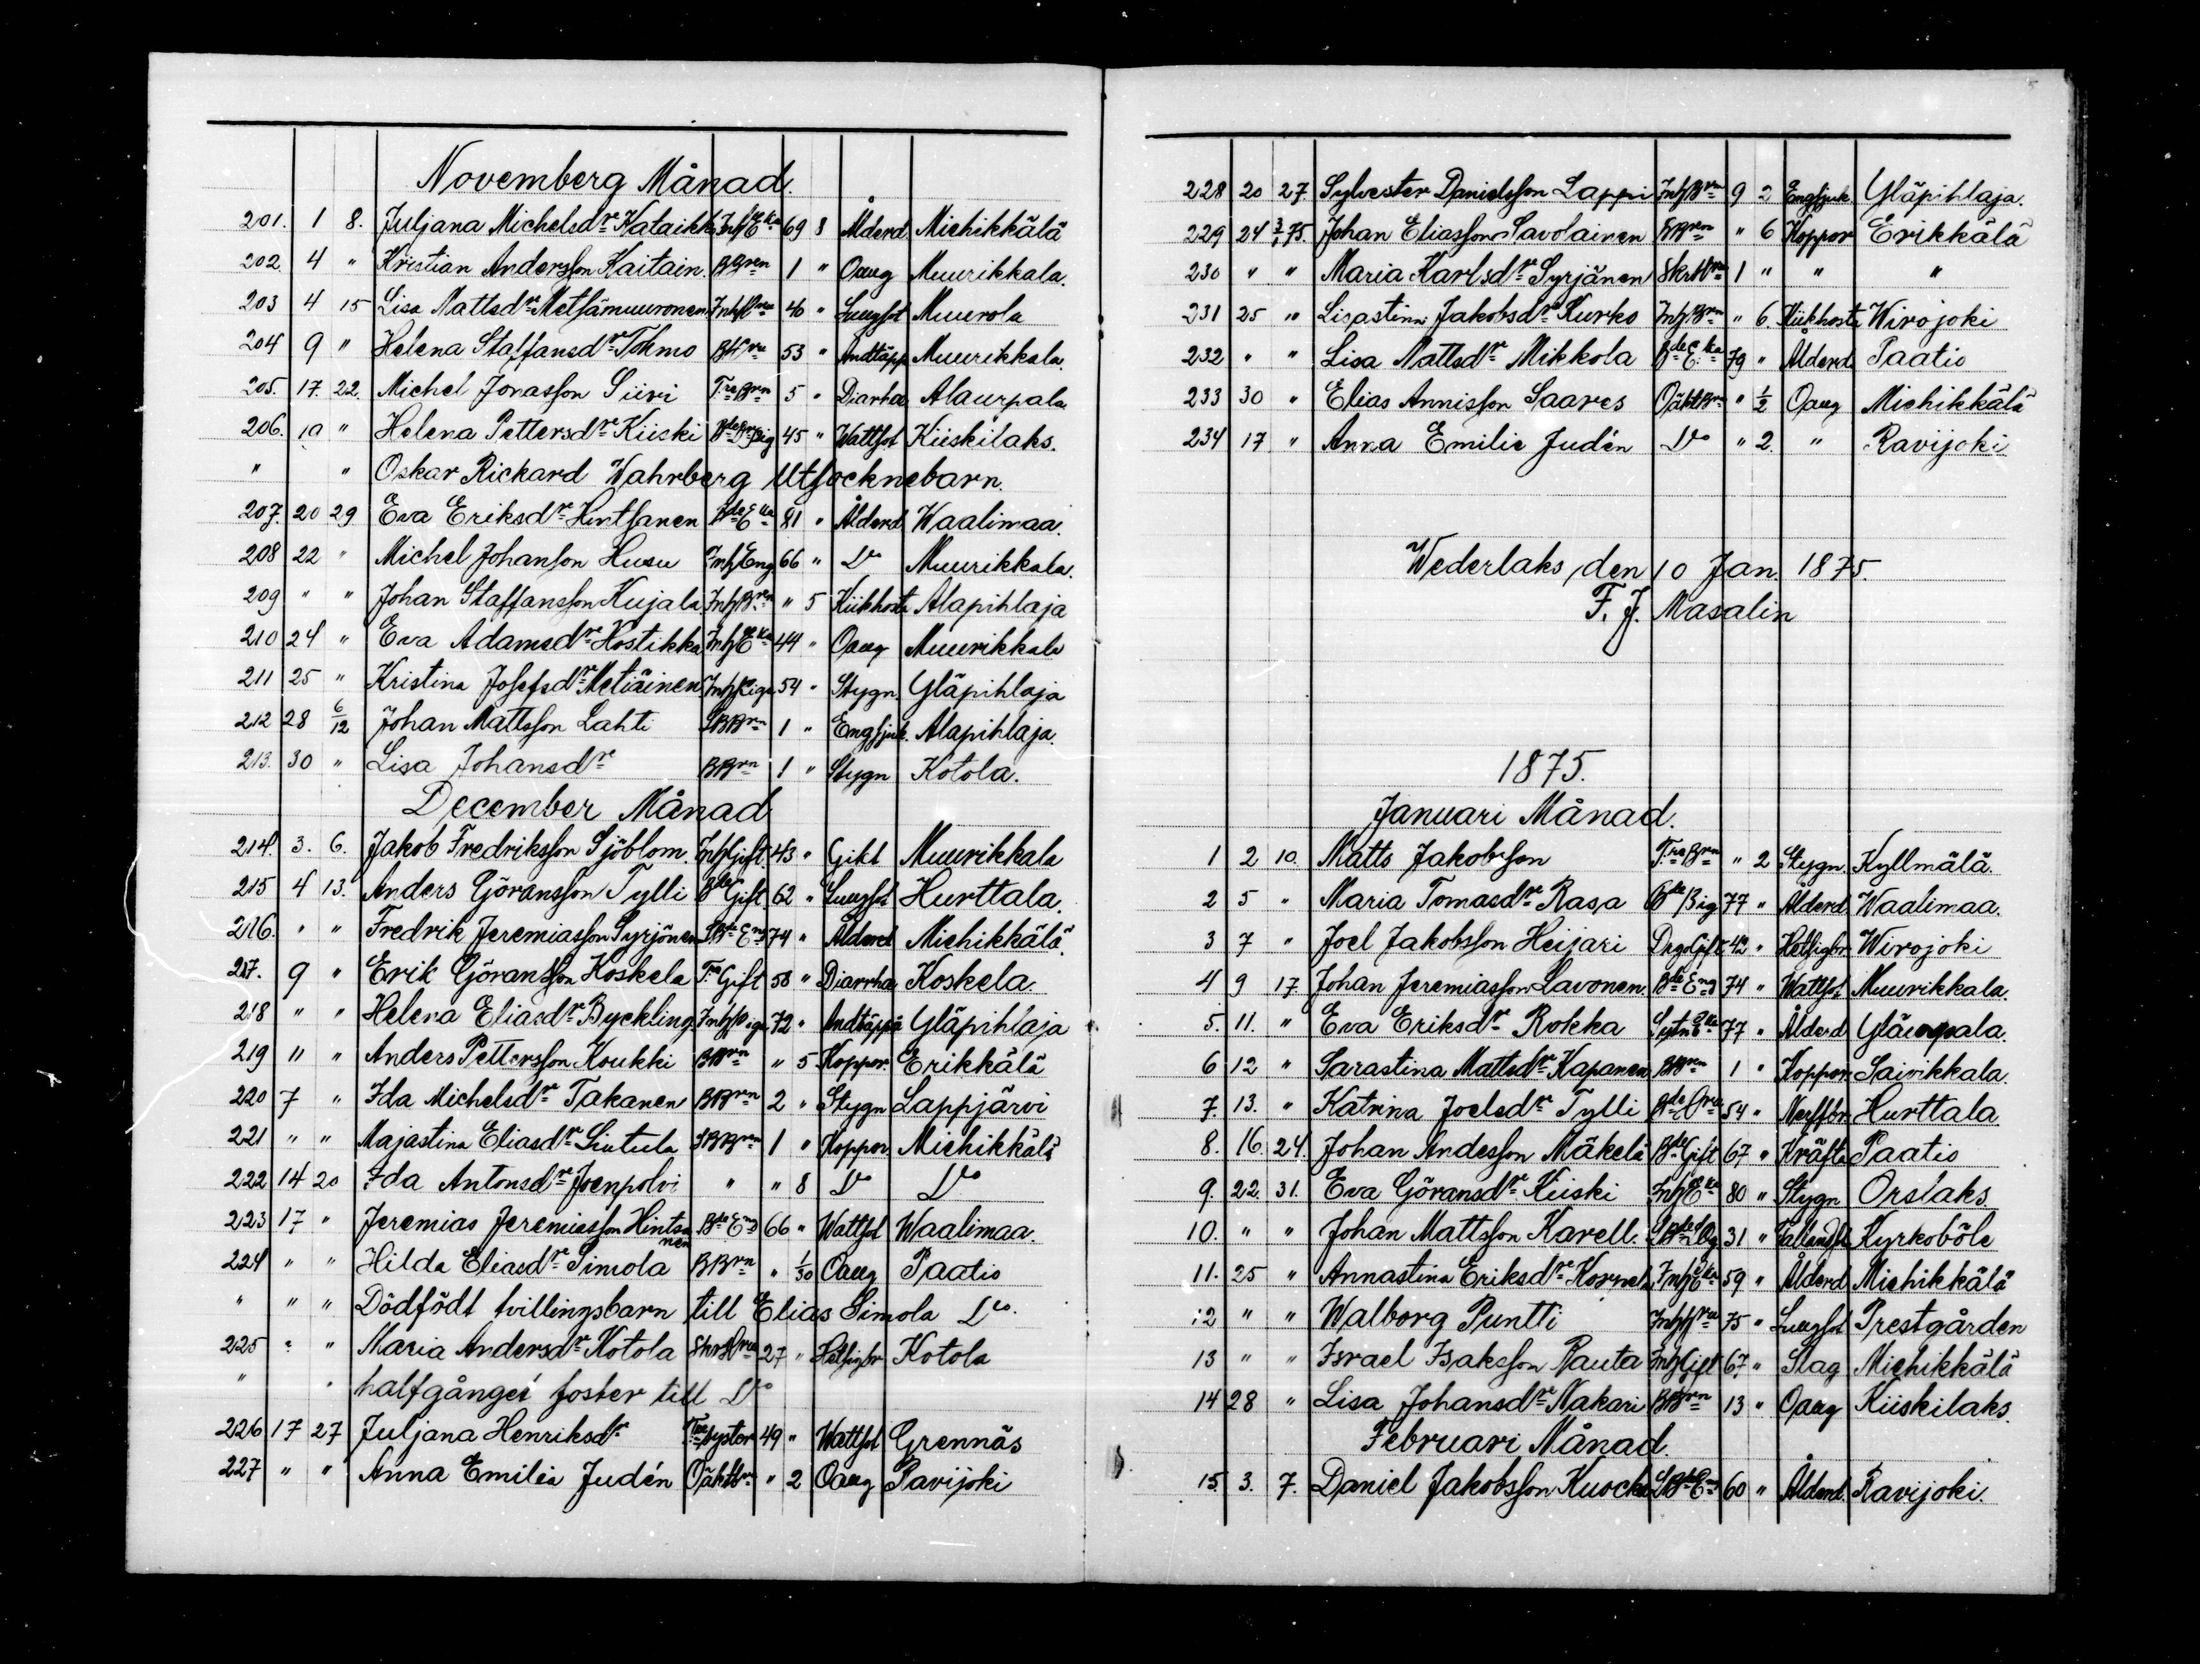 Novemberg Månad.
201. 1 8. Juljana Michelsdr Kataikk Inh Eka 69 8 Ålderd. Michikkälä
202. 4 " Kristian Andersson Kaitain. BBrn 1 " Oaug Muurikkala.
203 4 15 Lisa Mattsdr Metsämuuronen Inh Hru 40 " Lungsot Muurola
204 9 " Helena Staffansdr Tohmo BHru 53 " Andtäpp Muurikkala.
205. 17. 22. Michel Jonasson Siivi Trs Brn 5 " Diarrha Alaurpala
206. 19 " Helena Pettersdr Kiiski 45 " Wattsot Kiiskilaks.
" " Oskar Rickard Wahrberg Utsocknebarn.
207. 20 29 Eva Eriksdr Hintsanen Bde Eka 81 " Ålderd Waalimaa.
208 22 " Michel Johanson Husu Inh Eng 66 " Do Muurikkala.
209 " " Johan Staffansson Kujala Inh Brn " 5 Kikhosta Alapihlaja
210 24 " Eva Adamsdr Hostikka Inh Eka 44 " Oaug Muurikkala
211 25 " Kristina Josefsdr Metiäinen Inh Piga 54 " Stygn. Yläpihlaja
212 28 6/12 Johan Mattsson Lahti SBBrn 1 " Eng.sjuk. Alapihlaja.
213. 30 " Lisa Johansdr BBrn 1 " Stygn Kotola.
December Månad
214. 3. 6. Jakob Fredriksson Sjöblom. Inh Gift. 43 " Gikt Muurikkala
215 4 13. Anders Göransson Tylli Bde Gift. 62 " Lungsot Hurttala.
216. " " Fredrik Jeremiasson Syrjönen 74 " Ålderd Michikkälä.
217. 9 " Erik Göransson Koskela Trs Gift 58 " Diarrha Koskela.
218 " " Helena Eliasdr Byckling Inh Piga 72 " Andtäppa Yläpihlaja
219 11 " Anders Pettersson Koukki BBrn " 5 Koppor. Erikkälä
220 7 " Ida Michelsdr Takanen BBrn 2 " Stygn Lappjärvi
221 " " Majastina Eliasdr Siutula SBBrn 1 " Koppor Michikkälä
222 14 20 Ida Antonsdr Joenpolvi " " 8 Do Do
223 17 " Jeremias Jeremiasson Hintsanen Bde Eng 66 " Wattsot Waalimaa.
224 " " Hilda Eliasdr Simola BBrn " 1/30 Oaug Paatio
" " " Dödfödt tvillingsbarn till Elias Simola Do.
225 " " Maria Andersdr Kotola Skrs Hru 27 " Kotola
" " halfgånget foster till Do
226 17 27 Juljana Henriksdr Trs syster 49 " Wattsot Grennäs
227 " " Anna Emilia Judén Oäkta Brn " 2 Oaug Ravijoki
228 20 27. Sylvester Danielsson Lappi Inh Brn 9 2 Eng.sjuk. Yläpihlaja.
229 24 3/1 75. Johan Eliasson Savolainen BBrn " 6 Koppor Erikkälä
230 " " Maria Karlsdr Syrjänen 1 " " "
231 25 " Lisastina Jakobsdr Kurko Inh Brn " 6. Kikhosta Wirojoki
232 " " Lisa Mattsdr Mikkola Bde Eka 79 " Ålderd. Paatio
233 30 " Elias Annisson Saares Oäkt Brn " 1/2 Oaug Michikkälä
234 17 " Anna Emilie Judén Do " 2. " Ravijoki
Wederlaks, den 10 Jan. 1875.
F. J. Masalin
1875.
Januari Månad.
1 2 10. Matts Jakobsson Trs Brn " 2 Stygn. Kyllmälä.
2 5 " Maria Tomasdr Rasa 77 " Ålderd. Waalimaa.
3 7 " Joel Jakobsson Heijari Drg Gift 42 " Wirojoki
4 9 17 Johan Jeremiasson Lavonen. Bde Eng 74 " Wattsot Muurikkala.
5. 11. " Eva Eriksdr Rokka Sytn Eka 77 " Ålderd Yläurpala.
6 12 " Sarastina Mattsdr Kapanen BBrn 1 " Koppor Saivikkala.
7. 13. " Katrina Joelsdr Tylli 54 " Hurttala.
8. 16. 24. Johan Andesson Mäkelä Bde Gift 67 " Kräfta Paatio
9. 22. 31. Eva Göransdr Kiiski Inh Eka 80 " Stygn Orslaks
10. " " Johan Mattsson Karell. 31 " Kyrkoböle
11. 25 " Annastina Eriksdr Korpela Inh Eka 59 " Ålderd Michikkälä
12 " " Walborg Puntti Inh Hru 75 " Lungsot Prestgården
13 " " Israel Isaksson Rauta Inh Gift 67. " Slag Michikkälä
14 28 " Lisa Johansdr Nakari BBrn 13 " Oaug Kiiskilaks.
Februari Månad.
15. 3. 7. Daniel Jakobsson Kuocka 60 " Ålderd. Ravijoki.